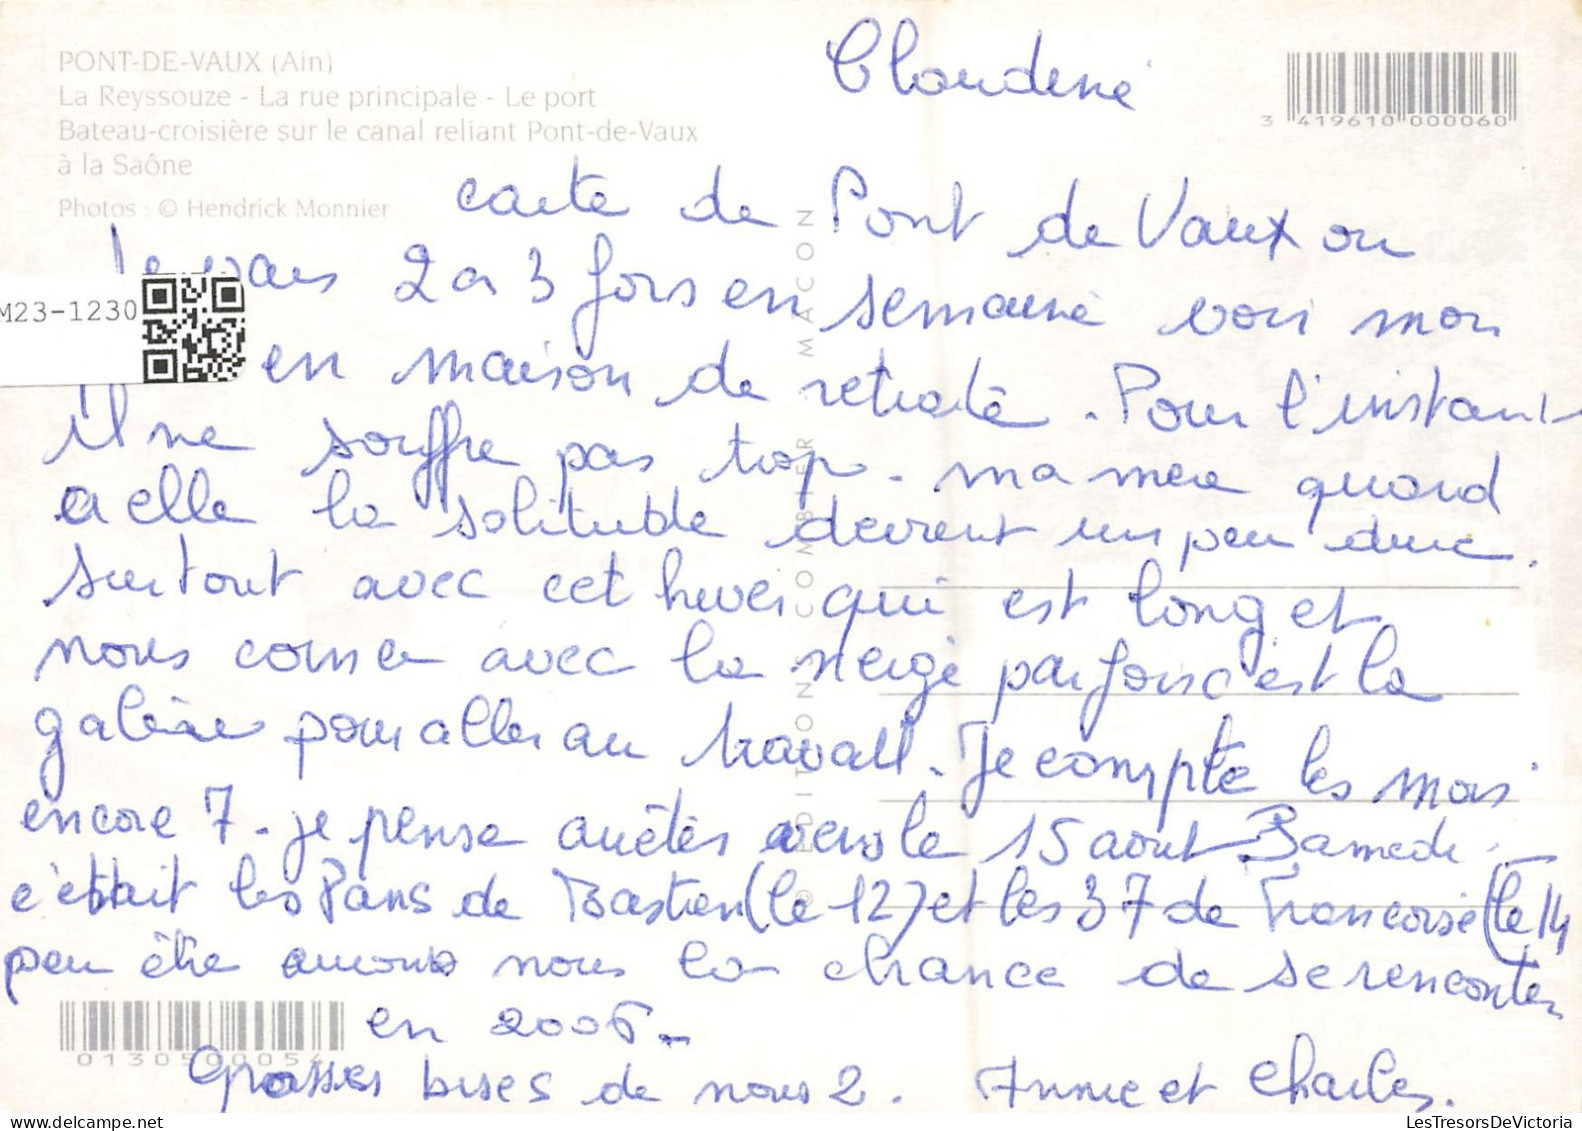 PONT-DE-VAUX (Ain)
La Reyssouze - La rue principale - Le port
Bateau-croisière sur le canal reliant Pont-de-Vaux
à la Saône
Photos : © Hendrick Monnier
Claudine
3 419610 000060
carte de Pont de Vaux ou
Je vais 2 a 3 fois en semaine voir mon
M23-1230
en maison de retraite. Pour l'instant
il ne souffre pas trop. ma mere quand
a elle la solitude devient un peu dure.
surtout avec cet hiver qui est long et
nous avec la neige parfois c'est la
galère pour aller au travail. Je compte les mois
encore 7. je pense arrêter vers le 15 aout. Samedi
c'était les ans de Bastien (le 12) et les 37 de Francoise (le 14
peu être aurons nous la chance de se rencontrer
en 2006.
Grosses bises de nous 2. Annie et Charles.
EDITION COMBIER MACON
LesTresorsDeVictoria